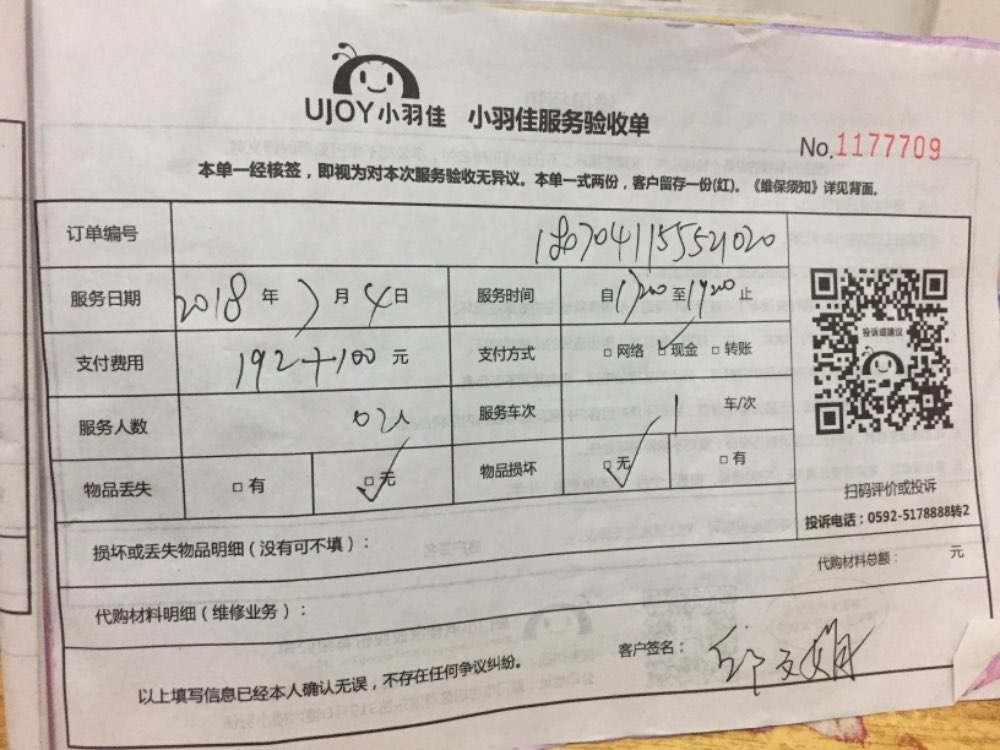 UJOY小羽佳 小羽佳服务验收单
No.1177709
本单一经核签，即视为对本次服务验收无异议。本单一式两份，客户留存一份(红)。《维保须知》详见背面。
订单编号 180704115552020
服务日期 2018 年 7 月 4 日 服务时间 自1700至1900止
支付费用 192+100 元 支付方式 □网络 □现金 □转账
投诉或建议
服务人数 02人 服务车次 1 车/次
物品丢失 □有 □无 物品损坏 □无 □有
扫码评价或投诉
投诉电话：0592-5178888转2
损坏或丢失物品明细（没有可不填）：
代购材料总额： 元
代购材料明细（维修业务）：
客户签名：
以上填写信息已经本人确认无误，不存在任何争议纠纷。